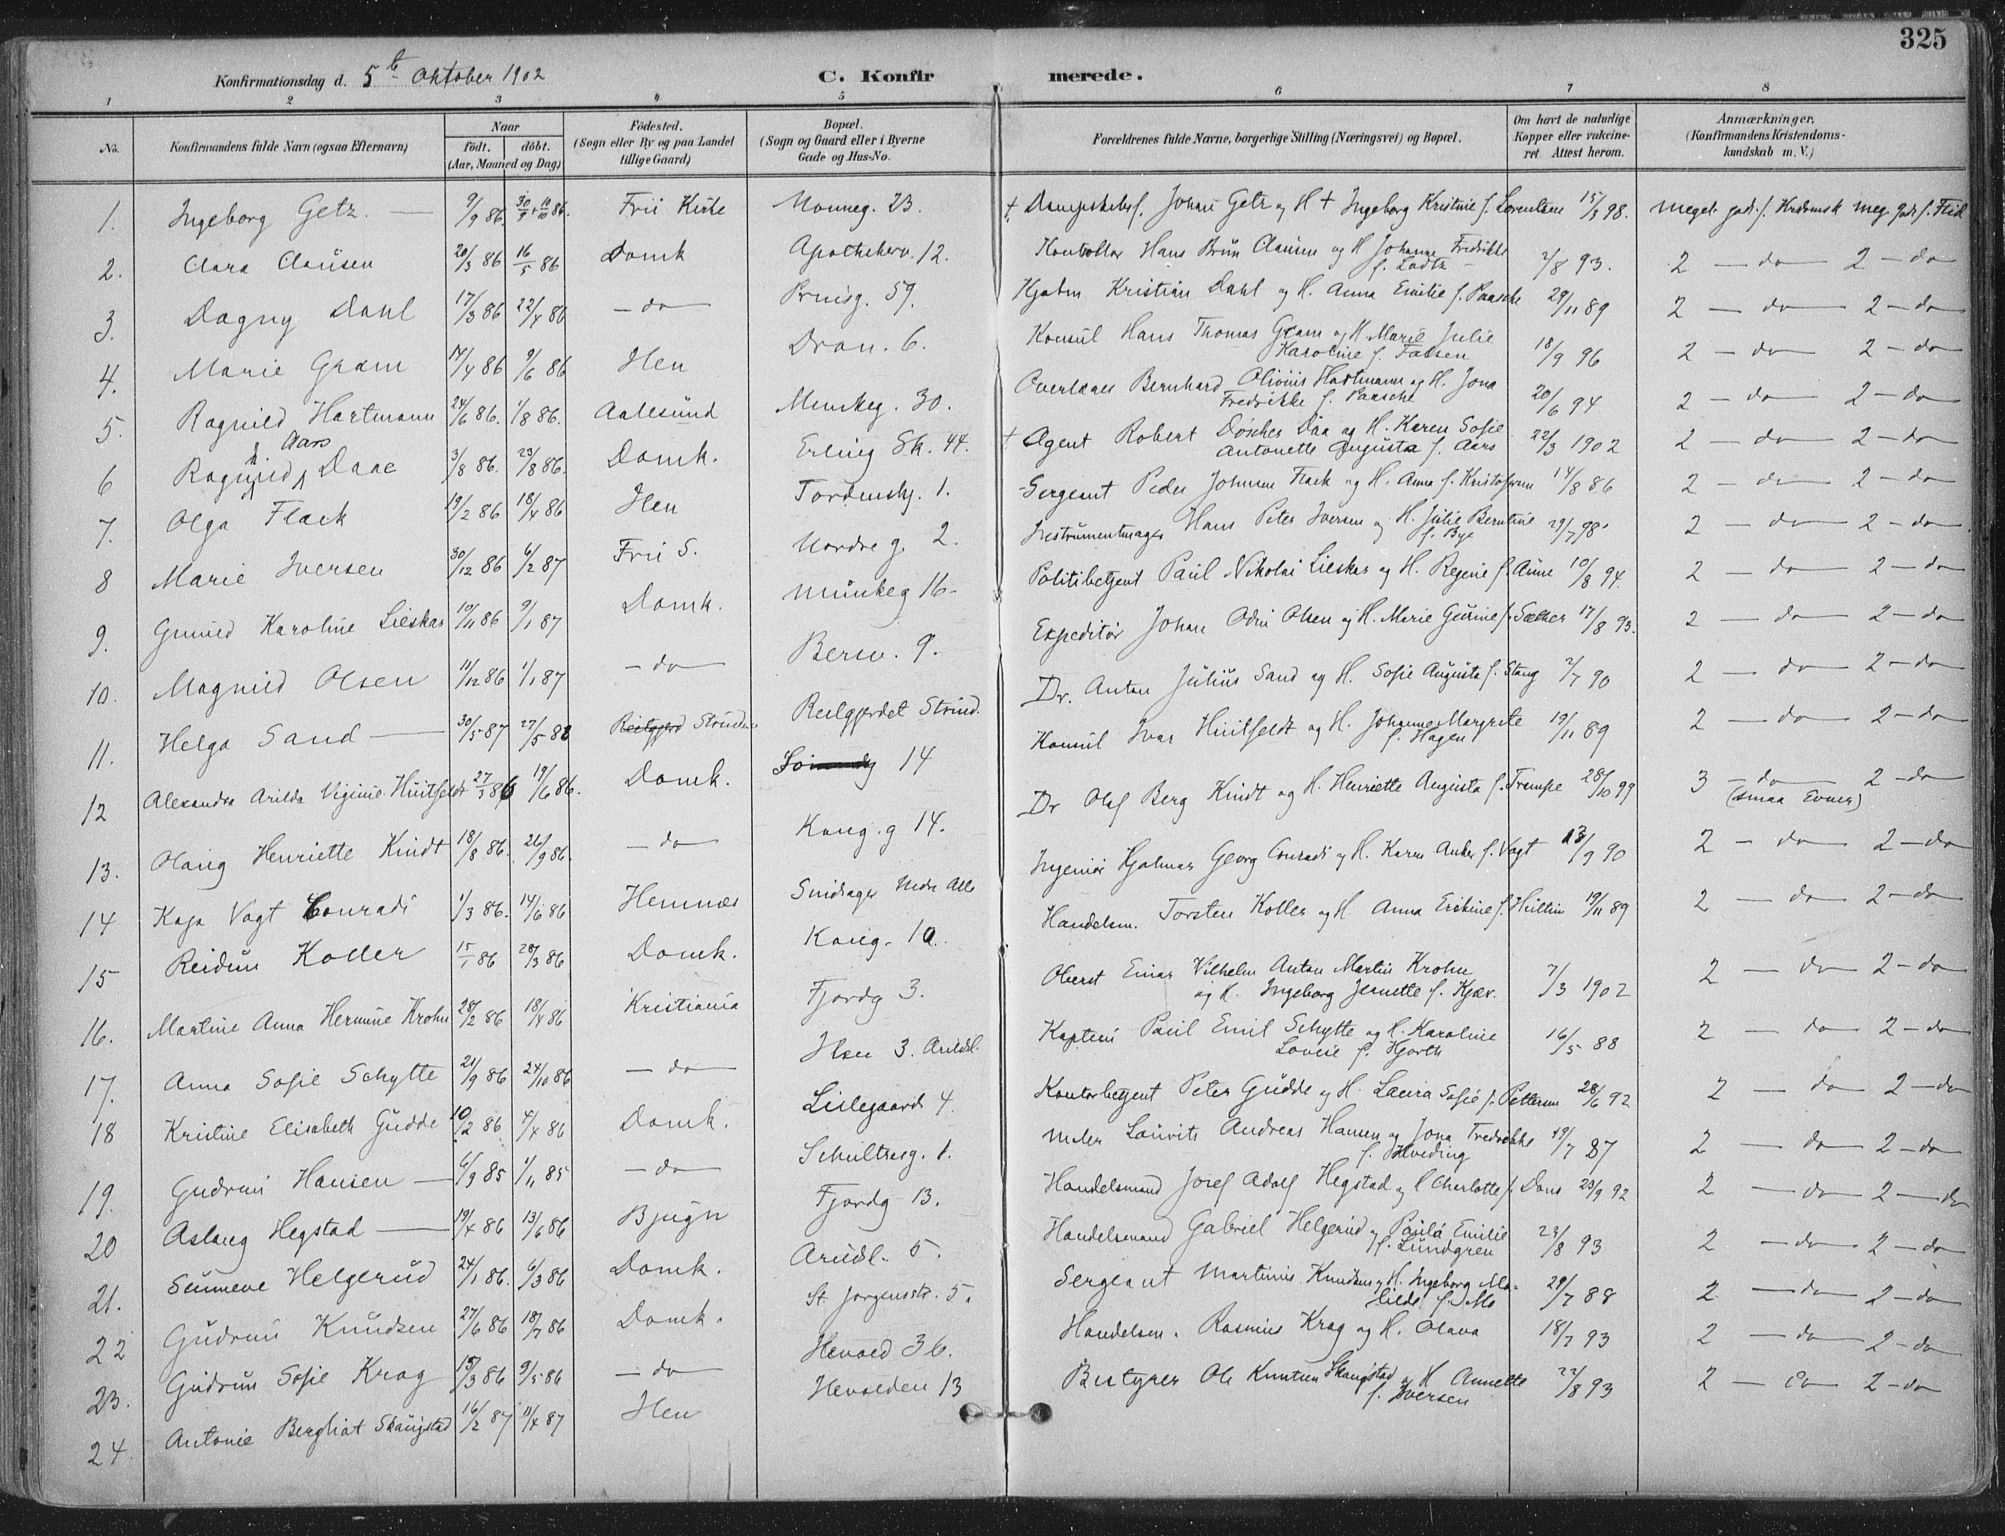 325
Konfirmationsdag d. 5te Oktober 1902 C. Konfir merede.
1 2 3 4 5 6 7 8
No. Konfirmandens fulde Navn (ogsaa Efternavn) Naar født. døbt. (Aar, Maaned og Dag) Fødested. (Sogn eller By og paa Landet tillige Gaard) Bopæl. (Sogn og Gaard eller i Byerne Gade og Hus-No. Forældrenes fulde Navne, borgerlige Stilling (Næringsvei) og Bopæl. Om havt de naturlige Kopper eller vakcineret Attest herom. Anmærkninger. (Konfirmandens Kristendomskundskab m. V.)
1. Ingeborg Getz. 9/9 86 30/9 + 10/10 86. Frü Kirke Munneg. 23. † Dampskibsf. Johan Getz og H † Ingeborg Kristine f. Lorentzen 15/3 98. Meget godt f. Krdomsk meg. godt f. Flid
2. Clara Clausen 20/3 86 16/5 86 Domk Apothekerv. 12. Kontrollør Hans Brun Clausen og H Johanne Fredrikke f. Ladtz 2/8 93. 2 — do 2 — do
3. Dagny Dahl 17/3 86 22/4 86 — do — Prinsg. 59. Kjøbm Kristian Dahl og H. Anna Emilie f. Paasche 29/11 89 2 — do 2 — do
4. Marie Gram 17/4 86 9/6 86 Ilen Dron. 6. Konsul Hans Thomas Gram og H Marie Julie Karoline f. Falsen 18/9 96 2 — do 2 — do
5. Ragnild Hartmann 24/6 86. 1/8 86. Aalesund Munkeg. 30. Overlærer Bernhard Olivius Hartmann og H. Jona Fredrikke f. Paasche 20/6 94 2 — do 2 — do
6 Ragnhild Aars Daae 3/8 86. 23/8 86. Domk. Erling Sk. 44. † Agent Robert Døscher Daa og H. Karen Sofie Antonette Augusta f. Aars 22/3 1902 2 — do 2 — do
7. Olga Flack 19/2 86 18/4 86 Ilen Tordenskj. 1. Sergeant Peder Johnsen Flack og H. Anna f. Kristofersen 14/8 86 2 — do 2 — do
8 Marie Iversen 30/12 86 6/2 87 Frü S. Nordre g. 2. Instrumentmager Hans Peter Iversen og H. Julie Berntine f. Bye 29/7 98 2 — do 2 — do
9. Gunild Karoline Lieskar 10/11 86 9/1 87 Domk. Munkeg 16 Politibetjent Paul Nikolai Lieskar og H. Regine f. Aune 10/8 94. 2 — do 2 — do
10. Magnild Olsen 11/12 86 1/1 87 — do — Bersv. 9. Expeditør Johan Odin Olsen og H. Marie Gurine f. Sæther 17/8 93. 2 — do 2 — do
11. Helga Sand 30/5 87 27/5 88 Strinden Reilgjerdet Strind. Dr. Anton Julius Sand og H. Sofie Augusta f. Stang 2/7 90 2 — do 2 — do
12 Alexandra Arilda Viginie Huitfeldt 27/3 86 19/6 86. Domk. 14 Konsul Ivar Huitfeldt og H. Johanne Margrete f. Hagen 19/11 89 2 — do 2 — do
13. Olaug Henriette Kindt 18/8 86. 26/9 86. — do Kong. g 14. Dr Olaf Berg Kindt og H. Henriette Augusta f. Trampe 28/10 99 3 — do (smaa Evner) 2 — do
14 Kaja Vogt Conradi 1/3 86. 14/6 86 Hemnæs Smidsager Nedre Alle Ingeniør Hjalmar Georg Conradi og H. Karen Anker f. Vogt 13/9 90 2 — do 2 — do
15 Reidun Koller 15/1 86 28/3 86 Domk. Kong. 10. Handelsm. Torsten Koller og H Anna Erikine f. Hultin 19/11 89 2 — do 2 — do
16. Martine Anna Hermine Krohn 28/2 86 18/4 86 Kristiania Fjordg 3. Oberst Einar Vilhelm Anton Martin Krohn og H. Ingeborg Jeanette f. Kjær. 7/3 1902 2 — do 2 — do
17. Anna Sofie Schytte 21/9 86 24/10 86 — do — Ilsv 3. Arildsl. Kaptein Paul Emil Schytte og H. Karoline Lovise f. Hjorth 16/5 88 2 — do 2 — do
18 Kristine Elisabeth Gudde 10/2 86 4/4 86 Domk. Lillegaards 4. Kontorbetjent Peter Gudde og H. Laura Sofie f. Pettersen 28/6 92 2 — do 2 — do
19. Gudrun Hansen 6/9 85 1/11 85 — do Schultzesg. 1. Maler Lauvits Andreas Hansen og Jona Fredrikke f. Hveding 19/7 87 2 — do 2 — do
20 Aslaug Hegstad 19/4 86 13/6 86 Bjugn Fjordg 13. Handelsmand Josef Adolf Hegstad og H Charlotte f. Dons 23/9 92 2 — do 2 — do
21. Sunneve Helgerud 24/1 86. 6/3 86 Domk. Arildsl. 5. Handelsmand Gabriel Helgerud og Paula Emilie f. Lundgren 23/8 93 2 — do 2 — do
22 Gudrun Knudsen 27/6 86 18/7 86 Domk. St. Jørgensstr. 5. Sergeant Martinus Knudsen og H. Ingeborg Matilde f. Mo 29/7 88 2 — do 2 — do
23. Gudrun Sofie Krog 15/3 86 9/5 86 — do Hevold 36. Handelsm. Rasmus Krog og H. Olava 18/7 93 2 — do 2 — do
24. Antonie Bergliot Skaugstad 16/2 87 11/4 87 Ilen Hevolden 13 Bestyrer Ole Knutsen Skaugstad og H Annette f. Iversen 22/8 93 2 — do 2 — do